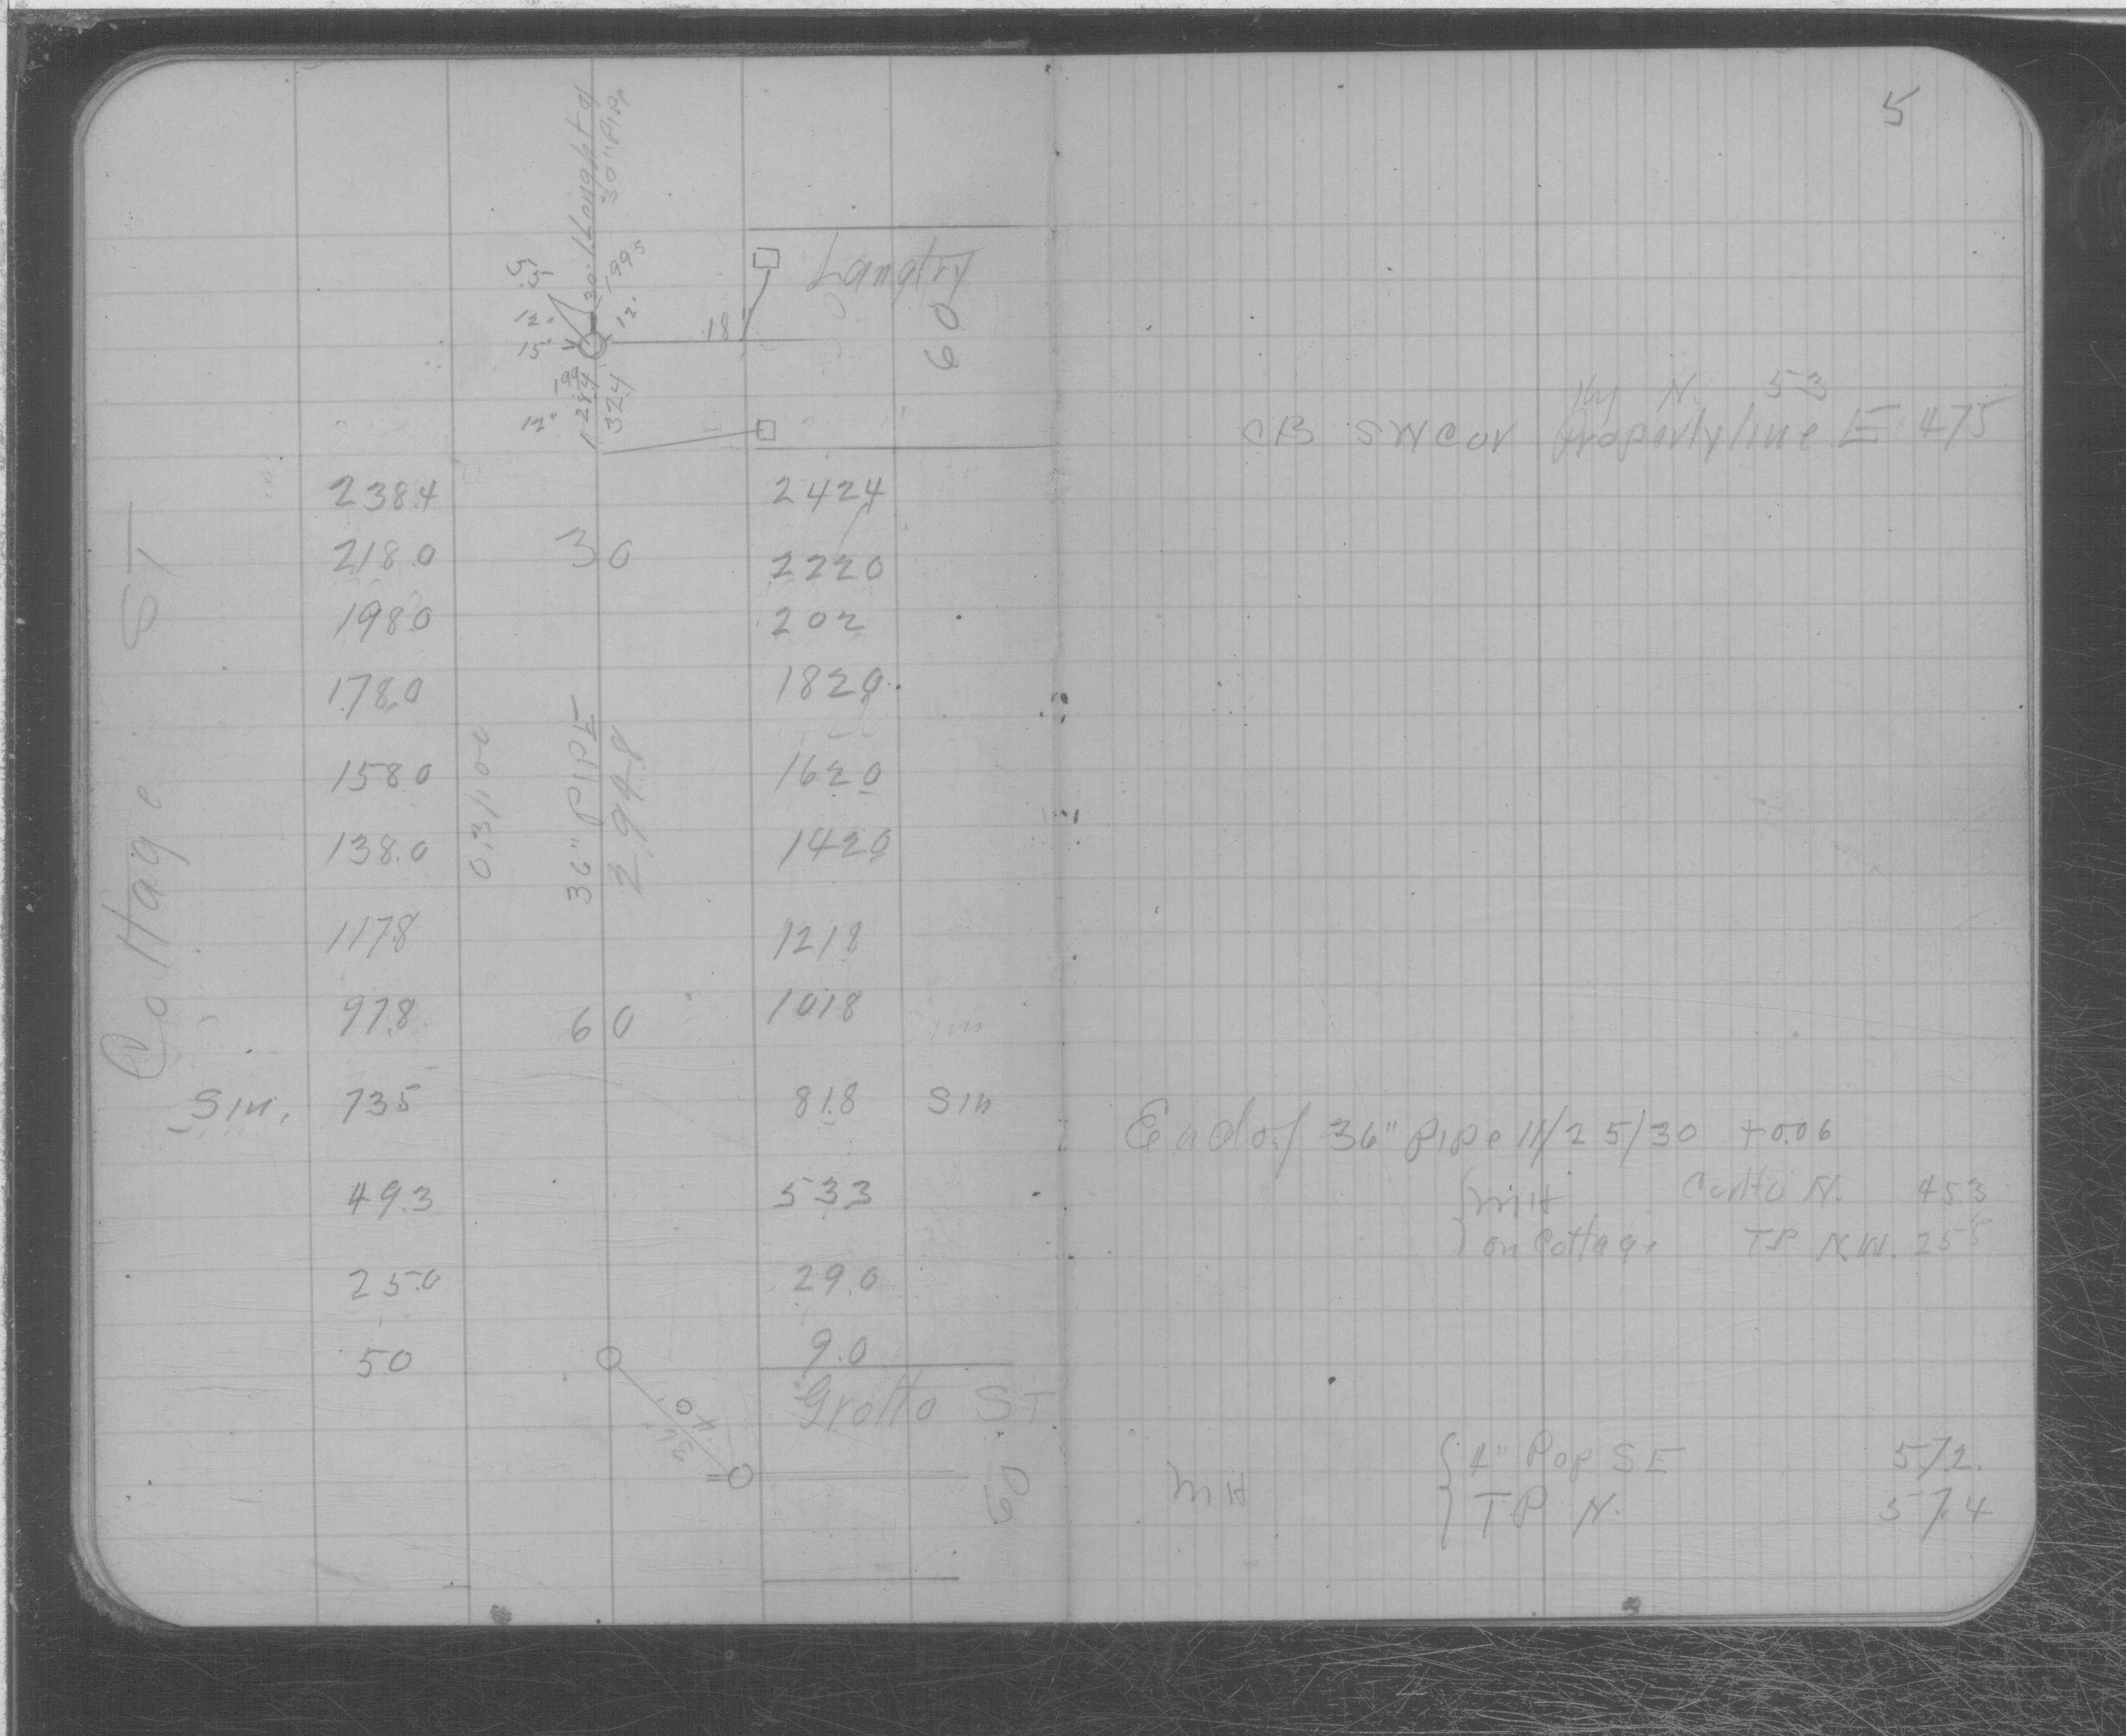 5
1 Length of
30" PIPe
5.5
30.
1995
Langtry
12.
12.
18
60
15'
199
284
324
12"
Hy N. 53
CB SW Cor Propertyline E 475
238.4 2424
218.0 30 2220
198.0 202
178.0 1820
158.0 1620
138.0 1420
1178 1218
97.8 60 1018
Cottage ST
0.3/100
36" PIPE
294.8
Sin. 735 81.8 Sin
End of 36" Pipe 11/25/30 +0.06
49.3 533
{MH N. 45.3
on Cottage TP N.W. 255
25.0 29.0
50 9.0
Grotto ST
36"
60
MH {4" Pop SE 57.2.
TP N. 57.4